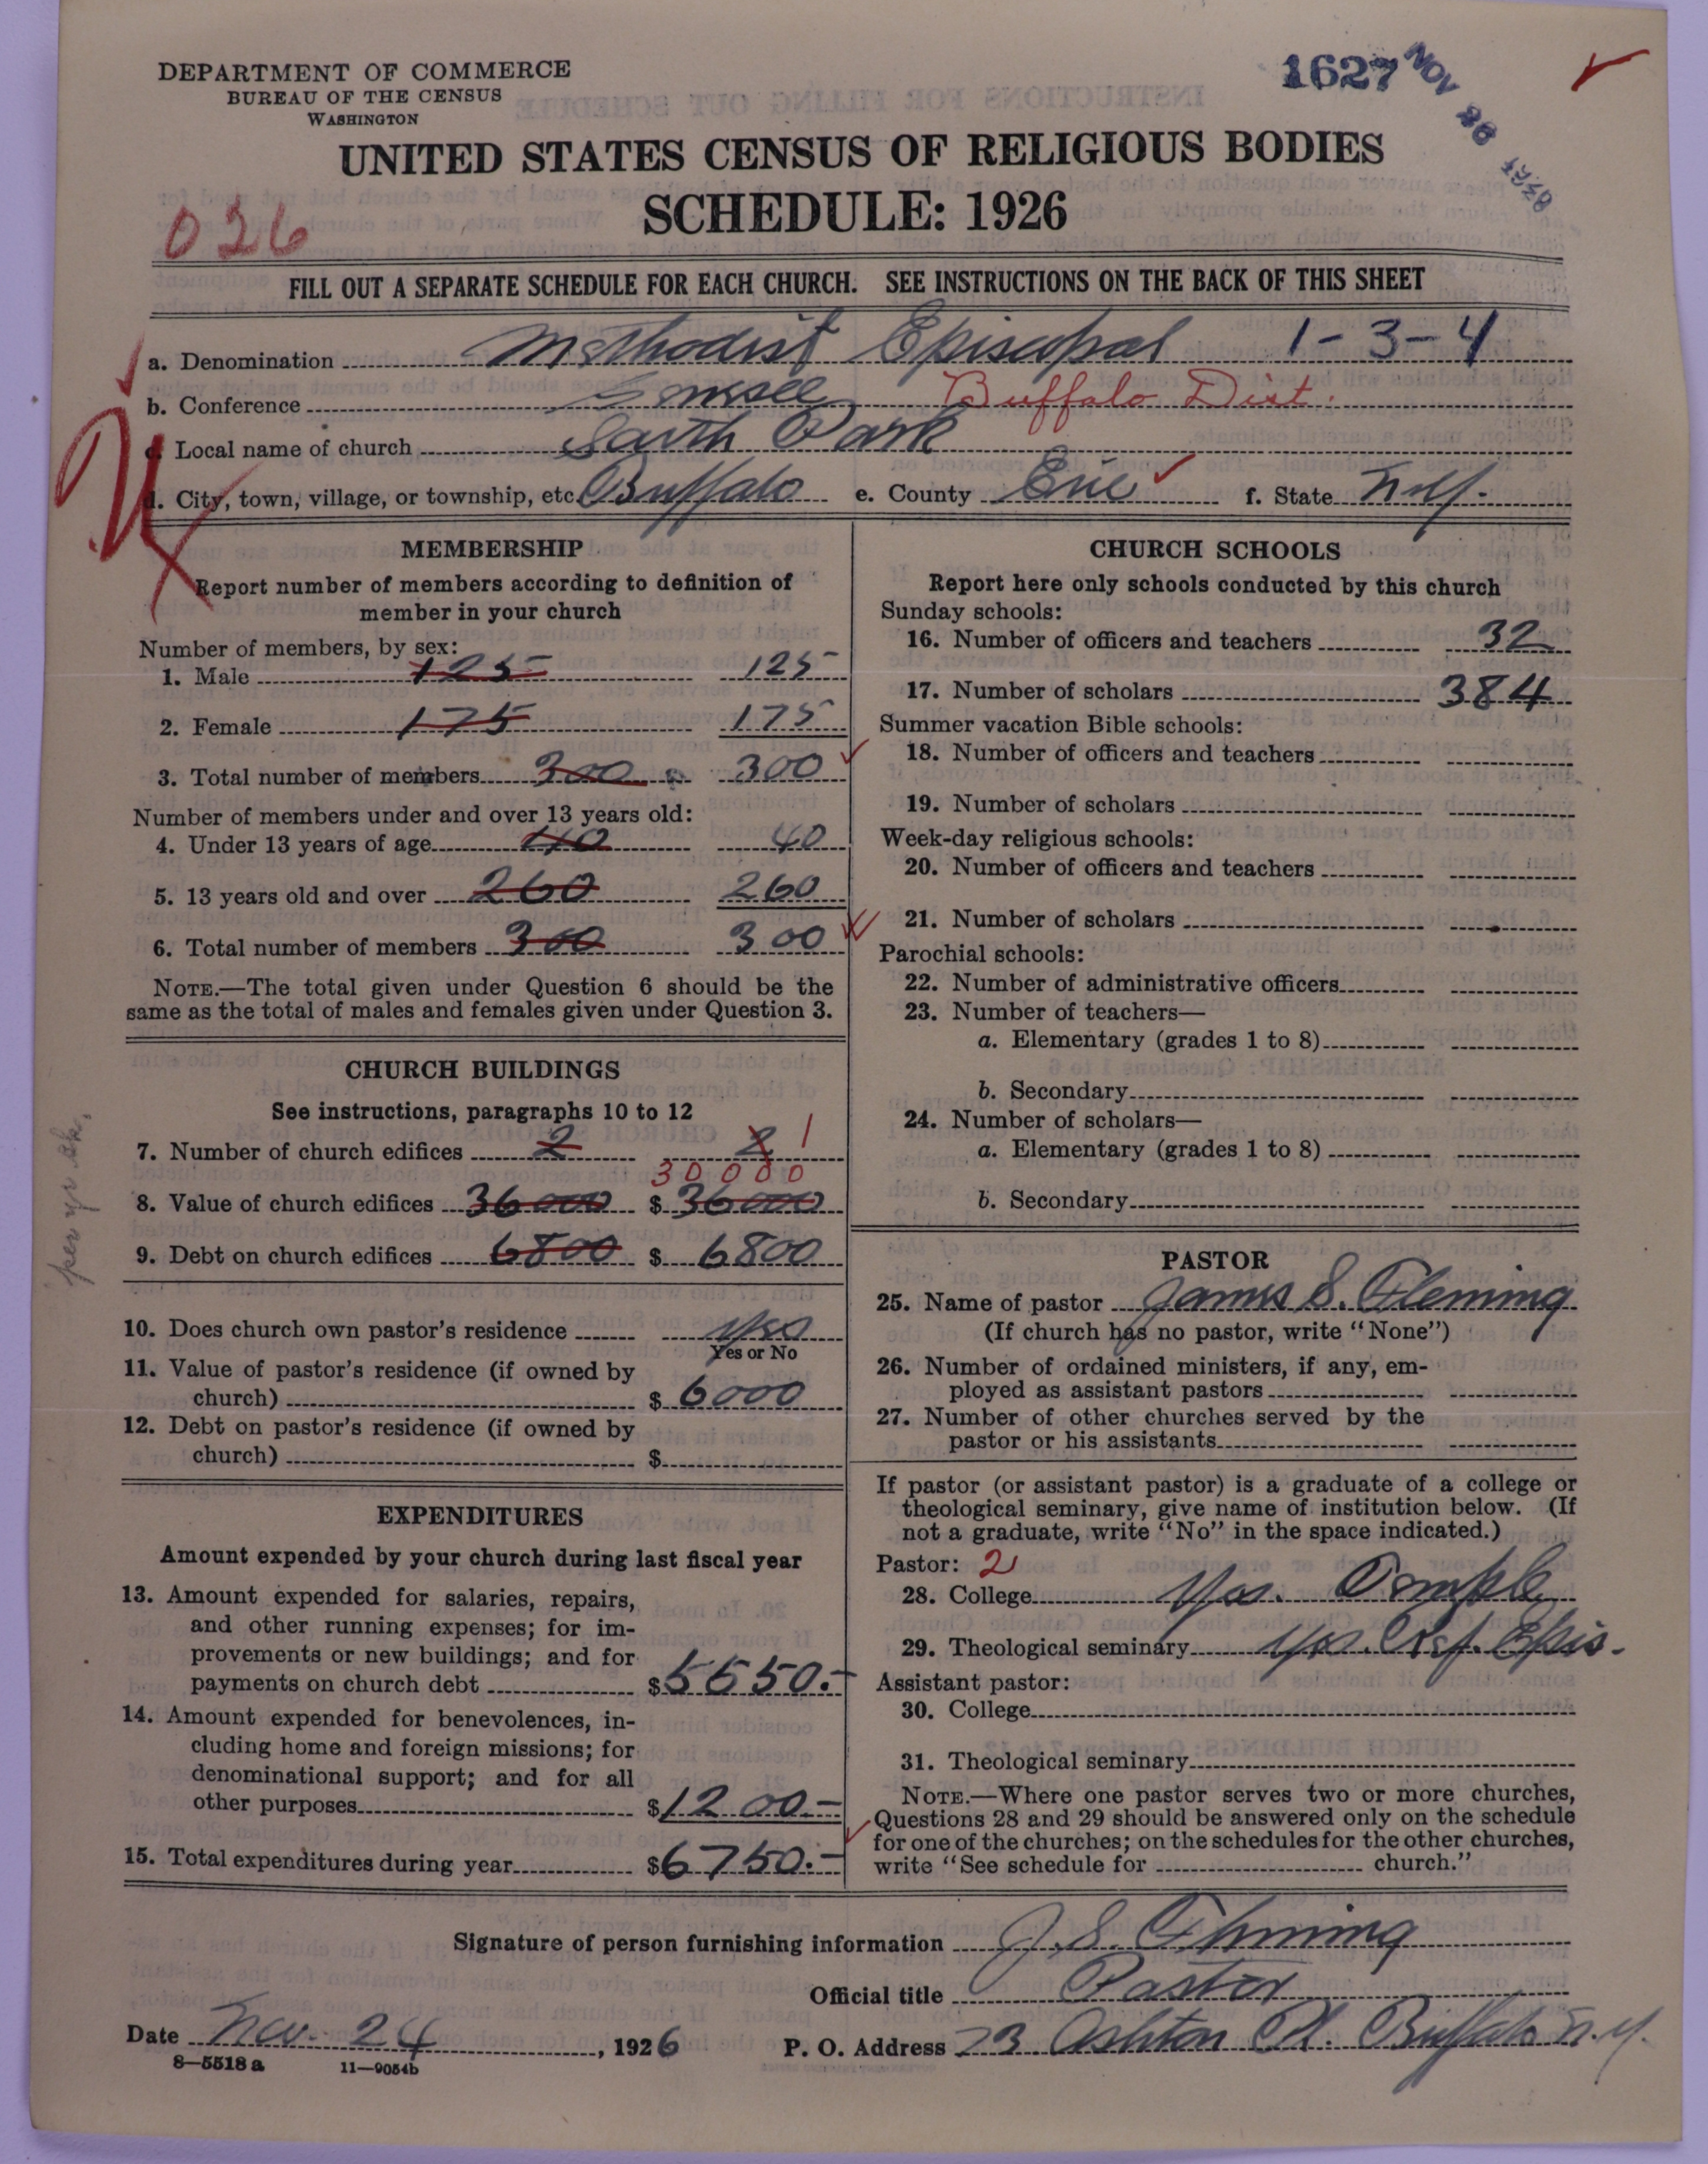 DEPARTMENT OF COMMERCE
BUREAU OF THE CENSUS
WASHINGTON
1627 NOV 26 1926
UNITED STATES CENSUS OF RELIGIOUS BODIES
SCHEDULE: 1926
026
FILL OUT A SEPARATE SCHEDULE FOR EACH CHURCH. SEE INSTRUCTIONS ON THE BACK OF THIS SHEET
a. Denomination Methodist Episcopal 1-3-4
b. Conference Genesee Buffalo Dist.
c. Local name of church South Park
d. City, town, village, or township, etc. Buffalo e. County Erie f. State N.Y.
MEMBERSHIP
Report number of members according to definition of
member in your church
Number of members, by sex:
1. Male 125 125
2. Female 175 175
3. Total number of members 300 300
Number of members under and over 13 years old:
4. Under 13 years of age 40 40
5. 13 years old and over 260 260
6. Total number of members 300 300
NOTE.—The total given under Question 6 should be the
same as the total of males and females given under Question 3.
CHURCH BUILDINGS
See instructions, paragraphs 10 to 12
7. Number of church edifices 2 2 1
30000
8. Value of church edifices 36000 $ 36000
9. Debt on church edifices 6800 $ 6800
per yr bk.
10. Does church own pastor's residence yes
Yes or No
11. Value of pastor's residence (if owned by
church) $ 6000
12. Debt on pastor's residence (if owned by
church) $
EXPENDITURES
Amount expended by your church during last fiscal year
13. Amount expended for salaries, repairs,
and other running expenses; for im-
provements or new buildings; and for
payments on church debt $5550.-
14. Amount expended for benevolences, in-
cluding home and foreign missions; for
denominational support; and for all
other purposes $1200-
15. Total expenditures during year $6750.-
CHURCH SCHOOLS
Report here only schools conducted by this church
Sunday schools:
16. Number of officers and teachers 32
17. Number of scholars 384
Summer vacation Bible schools:
18. Number of officers and teachers
19. Number of scholars
Week-day religious schools:
20. Number of officers and teachers
21. Number of scholars
Parochial schools:
22. Number of administrative officers
23. Number of teachers—
a. Elementary (grades 1 to 8)
b. Secondary
24. Number of scholars—
a. Elementary (grades 1 to 8)
b. Secondary
PASTOR
25. Name of pastor James S. Fleming
(If church has no pastor, write "None")
26. Number of ordained ministers, if any, em-
ployed as assistant pastors
27. Number of other churches served by the
pastor or his assistants
If pastor (or assistant pastor) is a graduate of a college or
theological seminary, give name of institution below. (If
not a graduate, write "No" in the space indicated.)
Pastor: 2
28. College Yes. Temple
29. Theological seminary Yes. Ref. Epis.
Assistant pastor:
30. College
31. Theological seminary
NOTE.—Where one pastor serves two or more churches,
Questions 28 and 29 should be answered only on the schedule
for one of the churches; on the schedules for the other churches,
write "See schedule for church."
Signature of person furnishing information J. S. Fleming
Official title Pastor
Date Nov. 24, 1926 P. O. Address 73 Ashton Pl. Buffalo N.Y.
8—5518 a 11—9054b